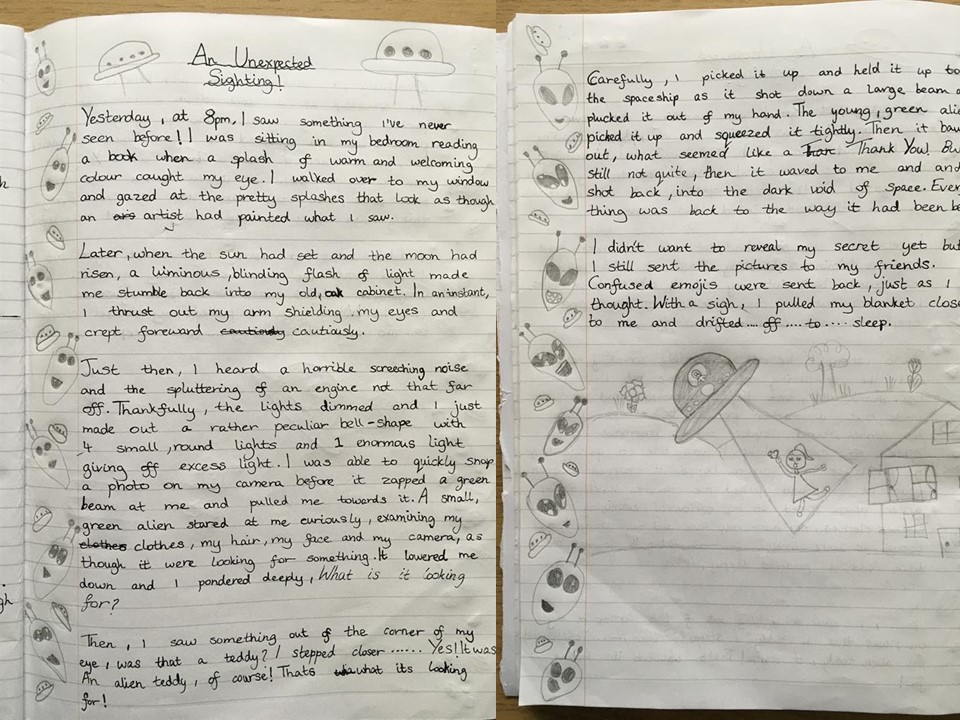 An Unexpected
Sighting!
Yesterday, at 8pm, I saw something I've never
seen before! I was sitting in my bedroom reading
a book when a splash of warm and welcoming
colour caught my eye. I walked over to my window
and gazed at the pretty splashes that look as though
an artist had painted what I saw.
Later, when the sun had set and the moon had
risen, a luminous, blinding flash of light made
me stumble back into my old, oak cabinet. In an instant,
I thrust out my arm shielding my eyes and
crept foreward cautiously cautiously.
Just then, I heard a horrible screeching noise
and the spluttering of an engine not that far
off. Thankfully, the lights dimmed and I just
made out a rather peculiar bell-shape with
4 small, round lights and 1 enormous light
giving off excess light. I was able to quickly snap
a photo on my camera before it zapped a green
beam at me and pulled me towards it. A small,
green alien stared at me curiously, examining my
clothes clothes, my hair, my face and my camera, as
though it were looking for something. It lowered me
down and I pondered deeply, What is it looking
for?
Then, I saw something out of the corner of my
eye, was that a teddy? I stepped closer...... Yes! It was
An alien teddy, of course! Thats what its looking
for!
Carefully, I picked it up and held it up to
the spaceship as it shot down a large beam a
plucked it out of my hand. The young, green alie
picked it up and squeezed it tightly. Then it baw
out, what seemed like a Than Thank You! Bu
still not quite, then it waved to me and and
shot back, into the dark void of space. Ever
thing was back to the way it had been be
I didn't want to reveal my secret yet but
I still sent the pictures to my friends.
Confused emojis were sent back, just as I
thought. With a sigh, I pulled my blanket close
to me and drifted.... off .... to .... sleep.